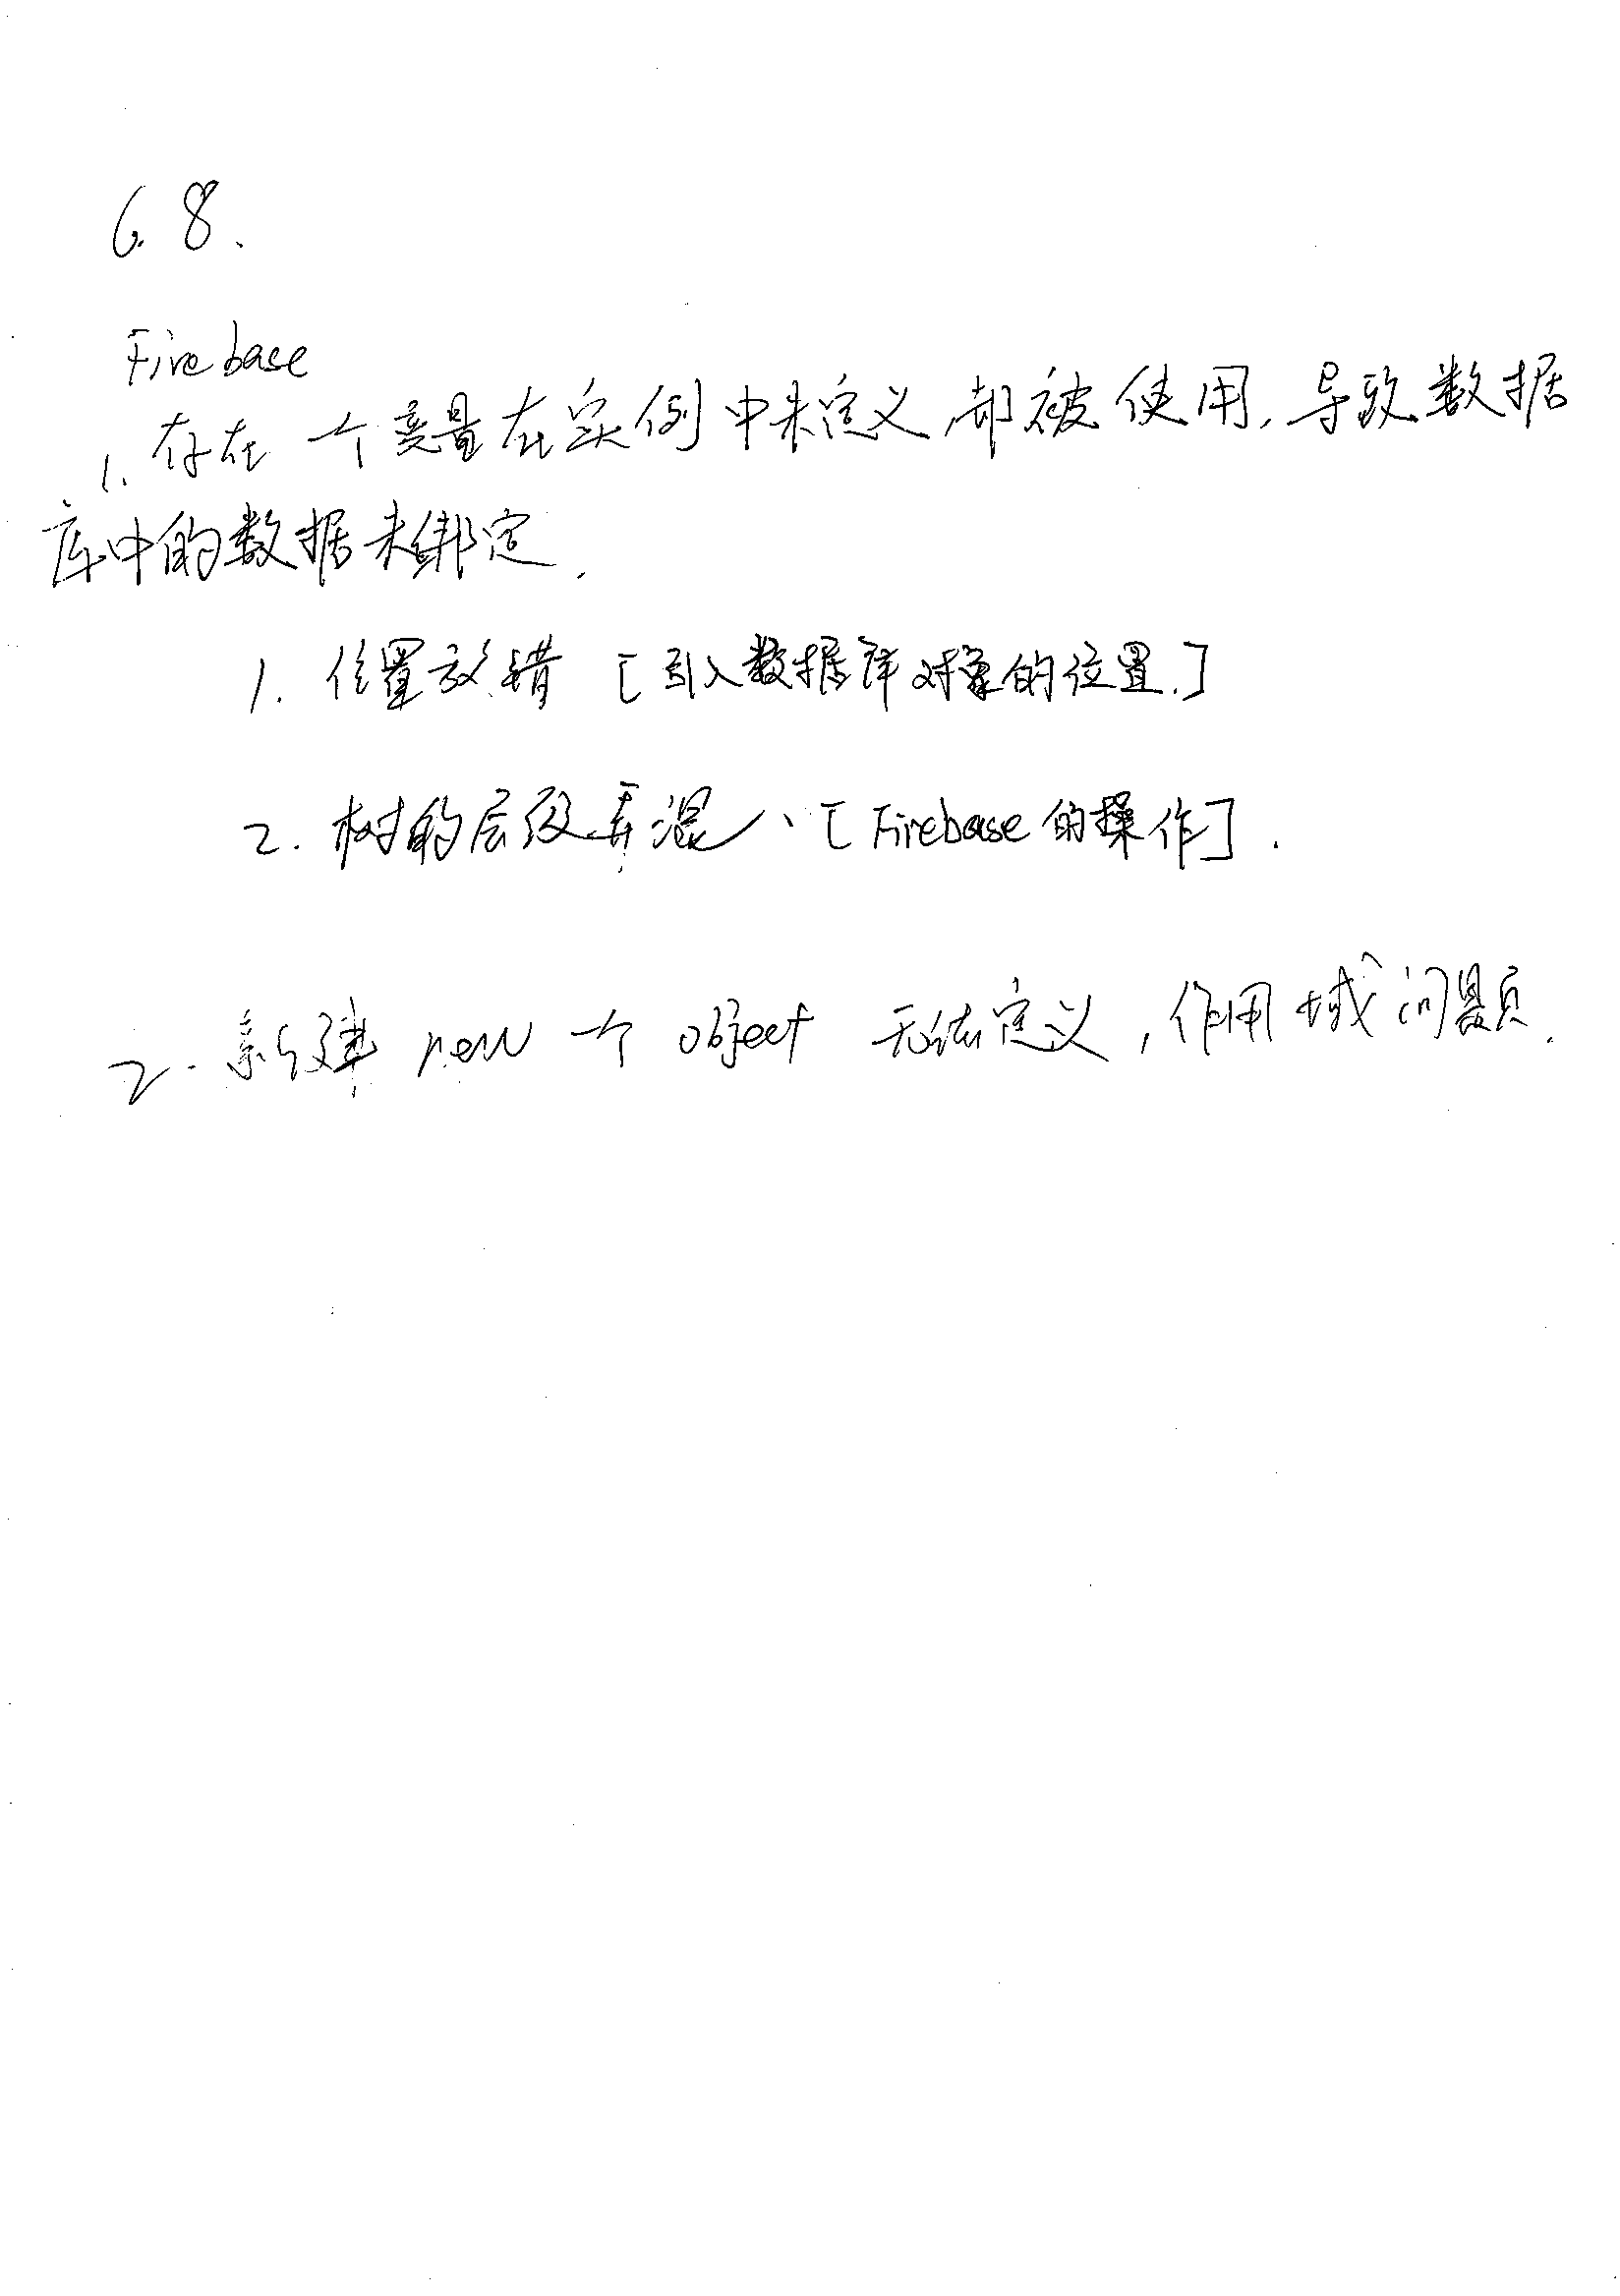 6.8.
Firebase
1. 存在一个变量在实例中未定义,却被使用,导致数据
库中的数据未绑定.
1. 位置放错 [引入数据库对象的位置.]
2. 树的层级弄混、[Firebase的操作].
2. 新建 new 一个 object 无法定义,作用域问题.